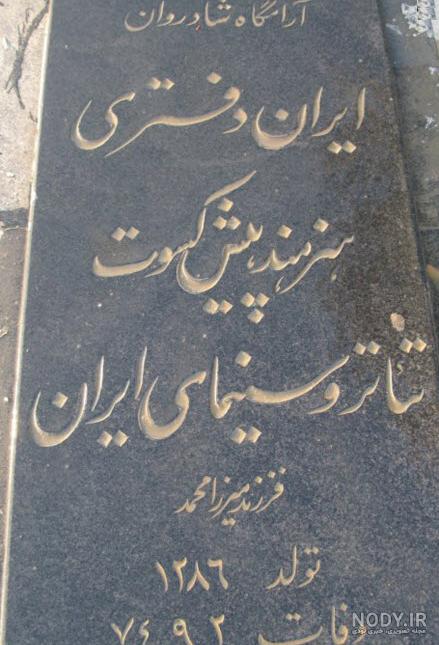 آرامگاه شادروان
ایران دفتری
هنرمند پیش کسوت
تئاتر و سینمای ایران
فرزند میرزا محمد
تولد ۱۲۸۶
وفات ۷۴ ۹ ۲
NODY.IR
مجله تصویری، خبری نودی